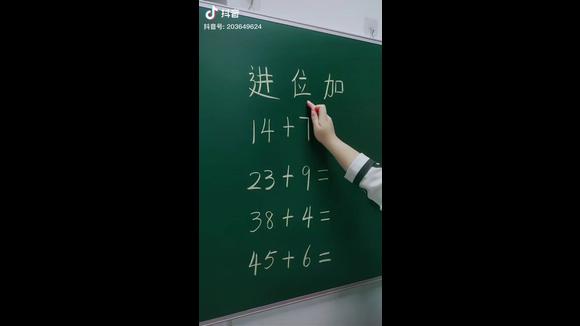 抖音
抖音号: 203649624
进位加
14+7
23+9=
38+4=
45+6=